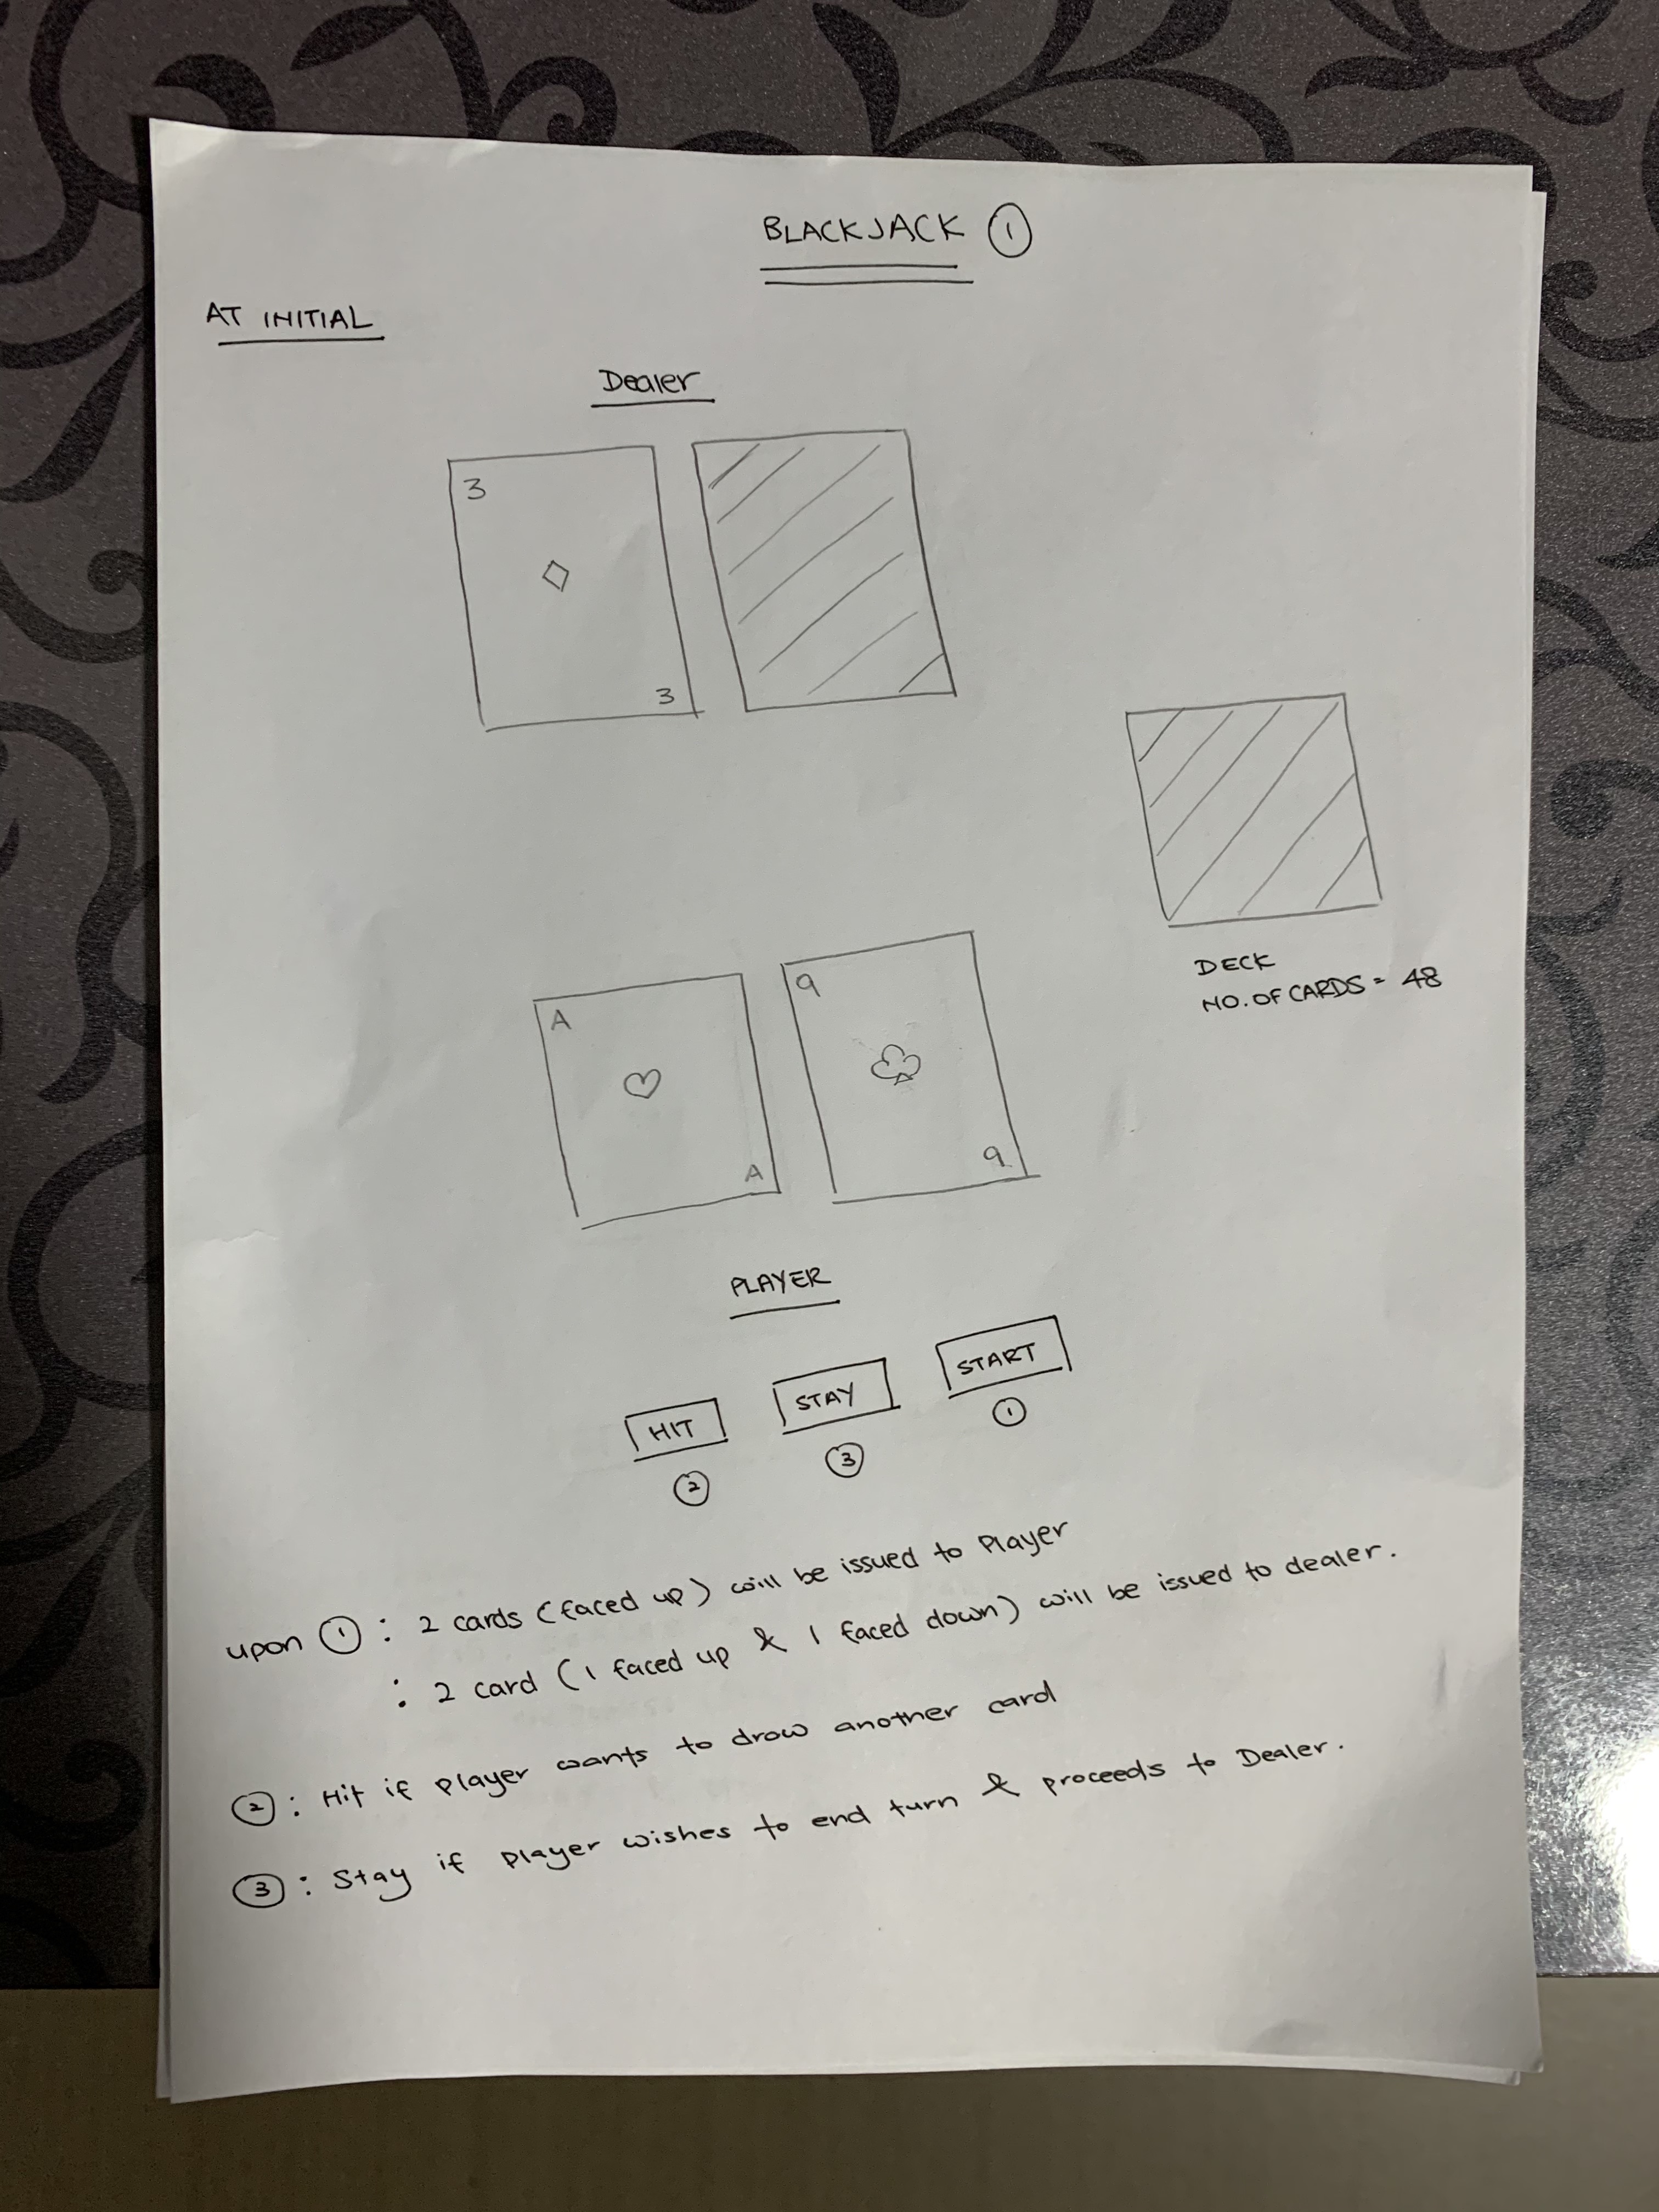 BLACKJACK ①
AT INITIAL
Dealer
3
3
DECK
NO. OF CARDS = 48
A
A
9
9
PLAYER
HIT
STAY
START
②
③
①
upon ① : 2 cards (faced up) will be issued to Player
: 2 card (1 faced up & 1 faced down) will be issued to dealer.
② : Hit if player wants to draw another card
③ : Stay if player wishes to end turn & proceeds to Dealer.